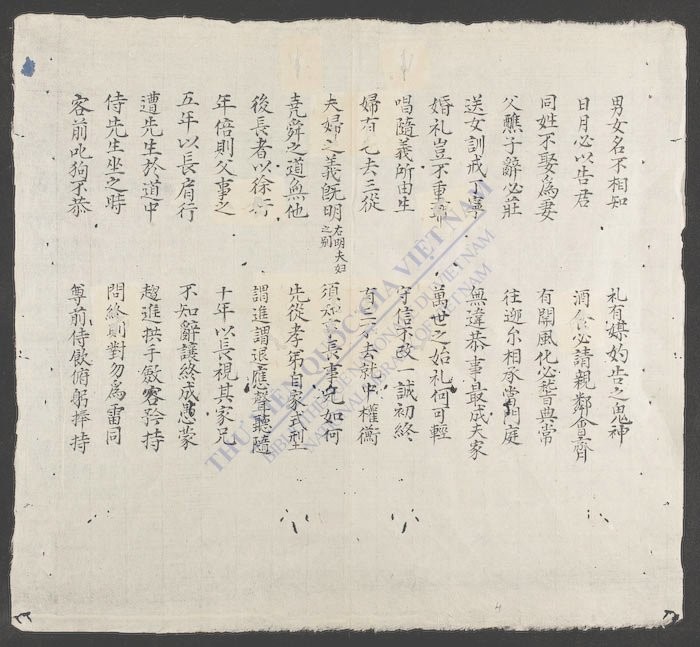 男女名不相知 礼有媒妁告之鬼神
日月必以告君 酒食必請親鄰會齊
同姓不娶為妻 有関風化必稽典常
父醮子辭必莊 往迎尔相承當門庭
送女訓戒丁寧 無違恭事最成夫家
婚礼豈不重 萬世之始礼何可輕
唱隨義所由生 守信不改一誠初終
婦有七去三從 有三不去就中權衡
夫婦之義既明 右明夫妇之别 須知長事兄如何
堯舜之道無他 先從孝弟自家式型
後長者以徐行 謂進謂退應聲聽隨
年倍則父事之 十年以長視其家兄
五年以長肩行 不知辭讓終成愚蒙
遭先生於道中 趨進拱手斂容矜持
侍先生坐之時 問終則對勿為雷同
客前叱狗不恭 尊前侍飲俯躬捧持
THƯ VIỆN QUỐC GIA VIỆT NAM
BIBLIOTHÈQUE NATIONALE DU VIETNAM
NATIONAL LIBRARY OF VIETNAM
4